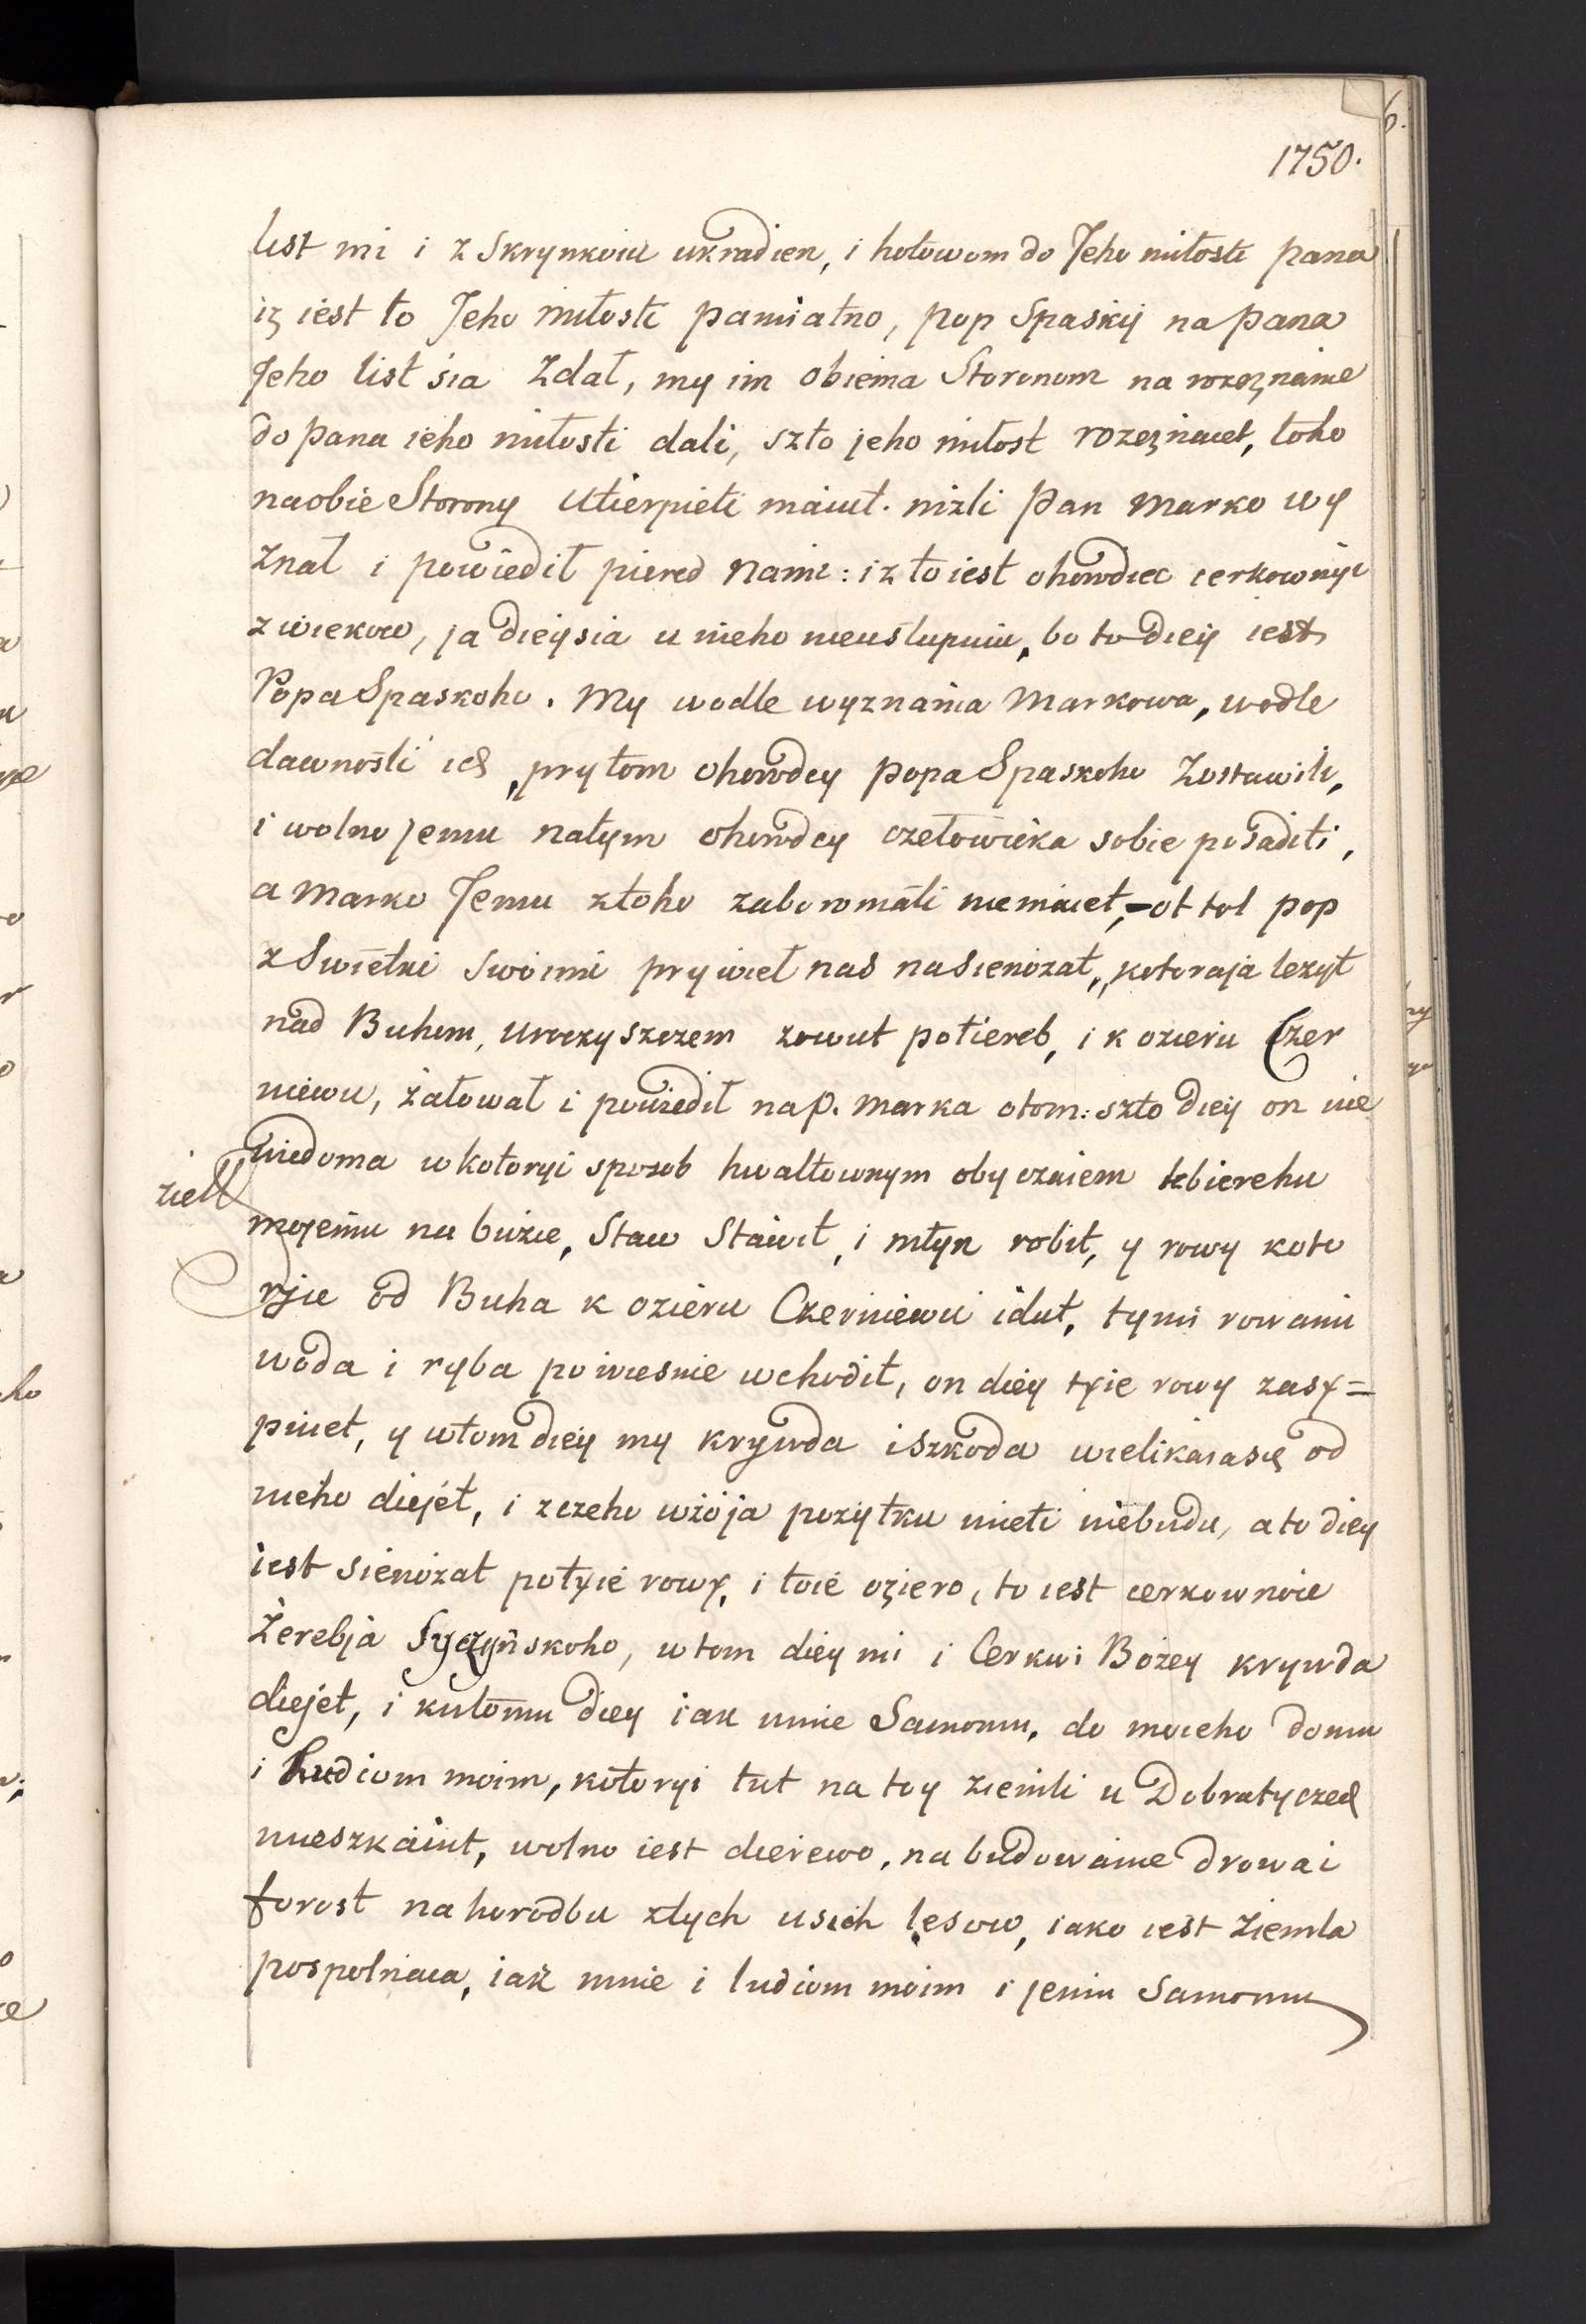 6.
1750.
list mi i z Skrynkoiu ukradien, i hotowom do Jeho miłosti pana
iż iest to Jeho miłosti pamiatno, pop Spaskij na pana
Jeho list sia zdał, my im obiema Storonom na rozeznanie
do pana ieho miłosti dali, szto jeho miłost rozeznaiet, toho
naobie Storony utierpieti maiut. nizli Pan Marko wy
znał i powiedił piered nami: iz to iest ohorodiec cerkownyi
z wiekow, ja dieysia u nieho nieustupuiu, bo to diey iest
Popa Spaskoho. My wodle wyznania Markowa, wodle
dawnosti ich, prytom ohorodcy popa Spaskoho Zostawili,
i wolno jemu natym ohorodcy czełowieka sobie posaditi,
a Marko Jemu ztoho zaboronati niemaiet,- ot tol pop
z Swietki swoimi prywiel nas nasienozat, kotoraja lezyt
nad Buhom, uroczyszczem zowut potiereb, i k ozieru Czer
niewu, żałował i powiedił na P. Marka otom: szto diey on nie
wiedoma w kotoryi sposob hwałtownym obyczaiem k bierehu
ziell
mojemu na buzie, Staw Stawit, i młyn robit, y rowy koto
ryie od Buha k ozieru Czerniewu idut, tymi rowami
woda i ryba po wiesnie wchodit, on diey tyie rowy zasy=
piuet, y wtom diey my krywda i szkoda wielikaiasię od
nieho diejet, i z czeho wżo ja pozytku mieti niebudu, a to diey
iest Sienozat po tyie rowy, i toie oziero, to iest cerkownoie
Żerebja Syczyńskoho, w tom diey mi i Cerkwi Bożey krywda
diejet, i kutomu diey iak mnie Samomu, do moieho domu
i Ludiom moim, kotoryi tut na toy ziemli u Dobratyczech
mieszkaiut, wolno iest dierewo, na budowanie drowa i
forost na horodbu ztych usich lesow, iako iest ziemla
pospolnaia, iak mnie i ludiom moim i jemu Samomu